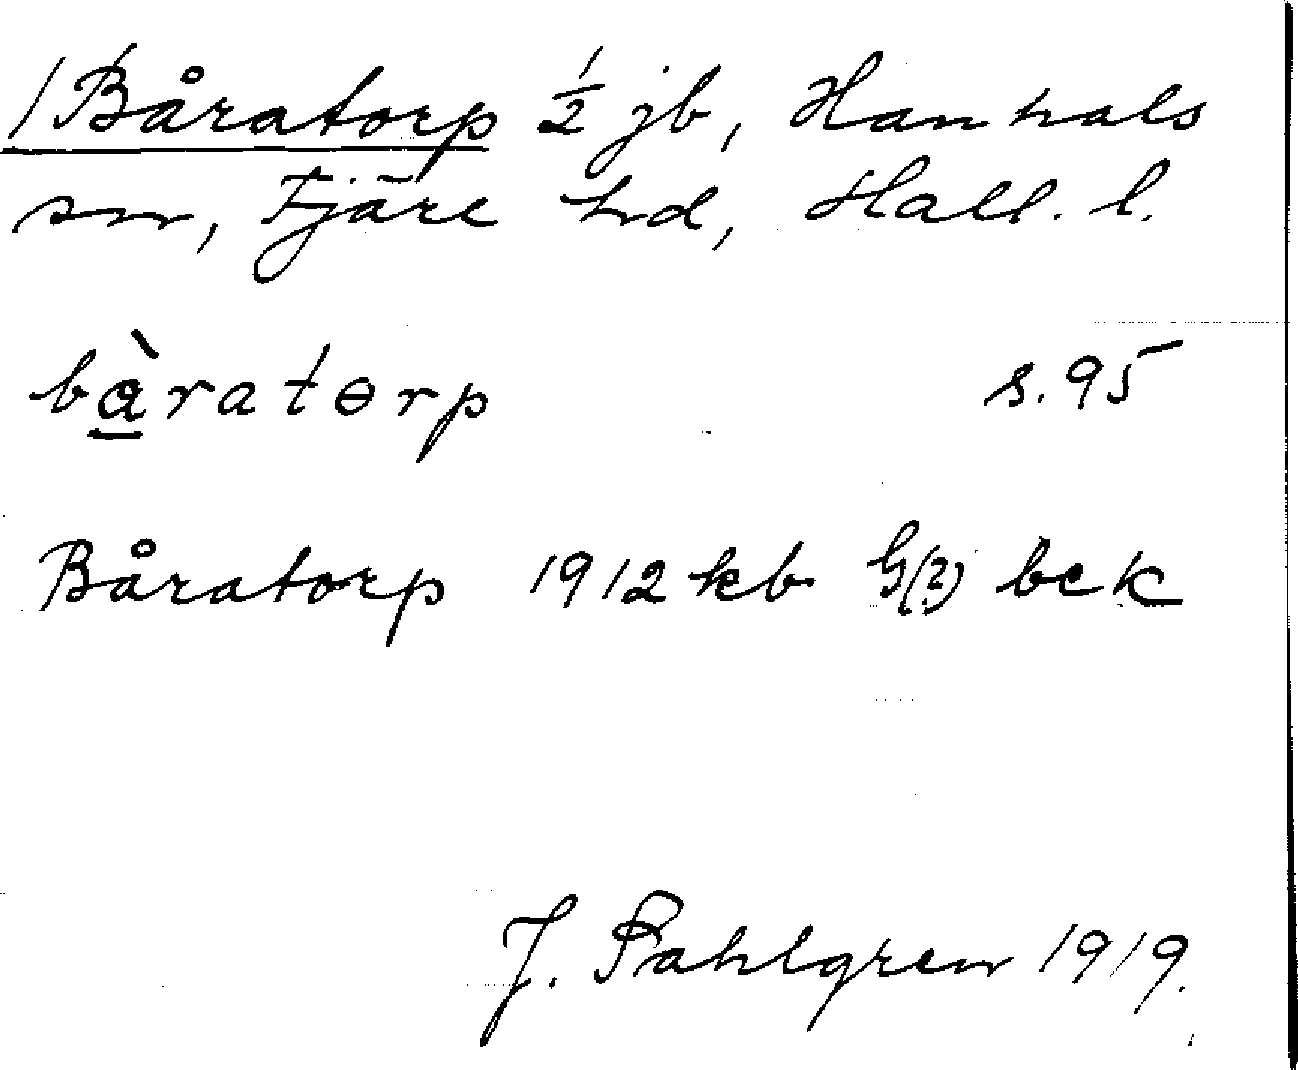 /Båratorp 1/2 jb, Hanhals
sn, Fjäre hd, Hall. l.
bàratɵrp s. 95
Båratorp 1912 kb G(?) bck
J. Sahlgren 1919.